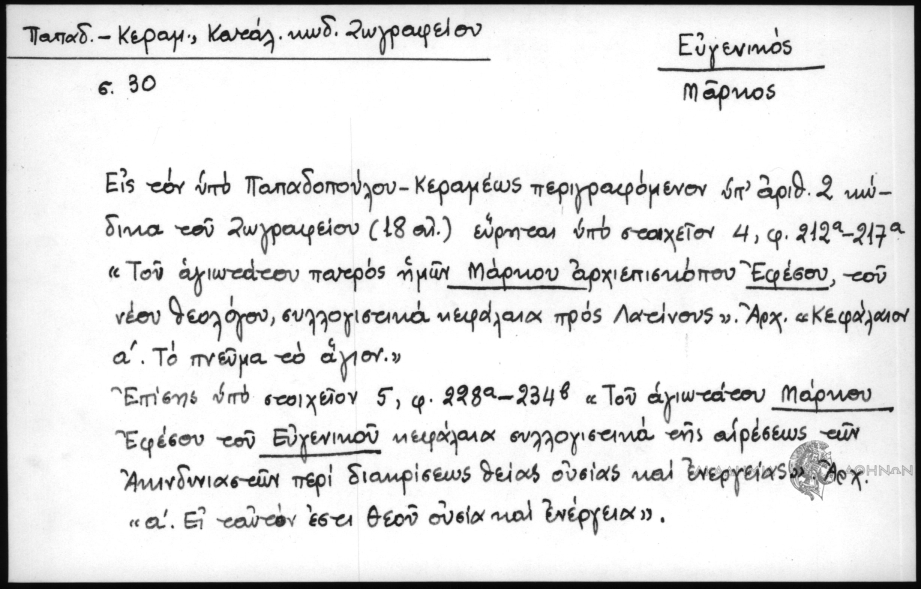 Παπαδ.-Κεραμ., Κατάλ. κωδ. Ζωγραφείου
Εὐγενικός
σ. 30
Μᾶρκος
Εἰς τόν ὑπό Παπαδοπούλου-Κεραμέως περιγραφόμενον ὑπ' ἀριθ. 2 κώ-
δικα τοῦ Ζωγραφείου (18 αἰ.) εὕρηται ὑπό στοιχεῖον 4, φ. 212α-217α
«Τοῦ ἁγιωτάτου πατρός ἡμῶν Μάρκου ἀρχιεπισκόπου Ἐφέσου, τοῦ
νέου θεολόγου, συλλογιστικά κεφάλαια πρός Λατίνους». Ἀρχ. «Κεφάλαιον
α'. Τό πνεῦμα τό ἅγιον.»
Ἐπίσης ὑπό στοιχεῖον 5, φ. 228α-234β «Τοῦ ἁγιωτάτου Μάρκου
Ἐφέσου τοῦ Εὐγενικοῦ κεφάλαια συλλογιστικά τῆς αἱρέσεως τῶν
Ἀκινδυνιαστῶν περί διακρίσεως θείας οὐσίας καί ἐνεργείας». Ἀρχ.
«α'. Εἰ ταὐτόν ἐστι θεοῦ οὐσία καί ἐνέργεια».
ΑΘΗΝΩΝ